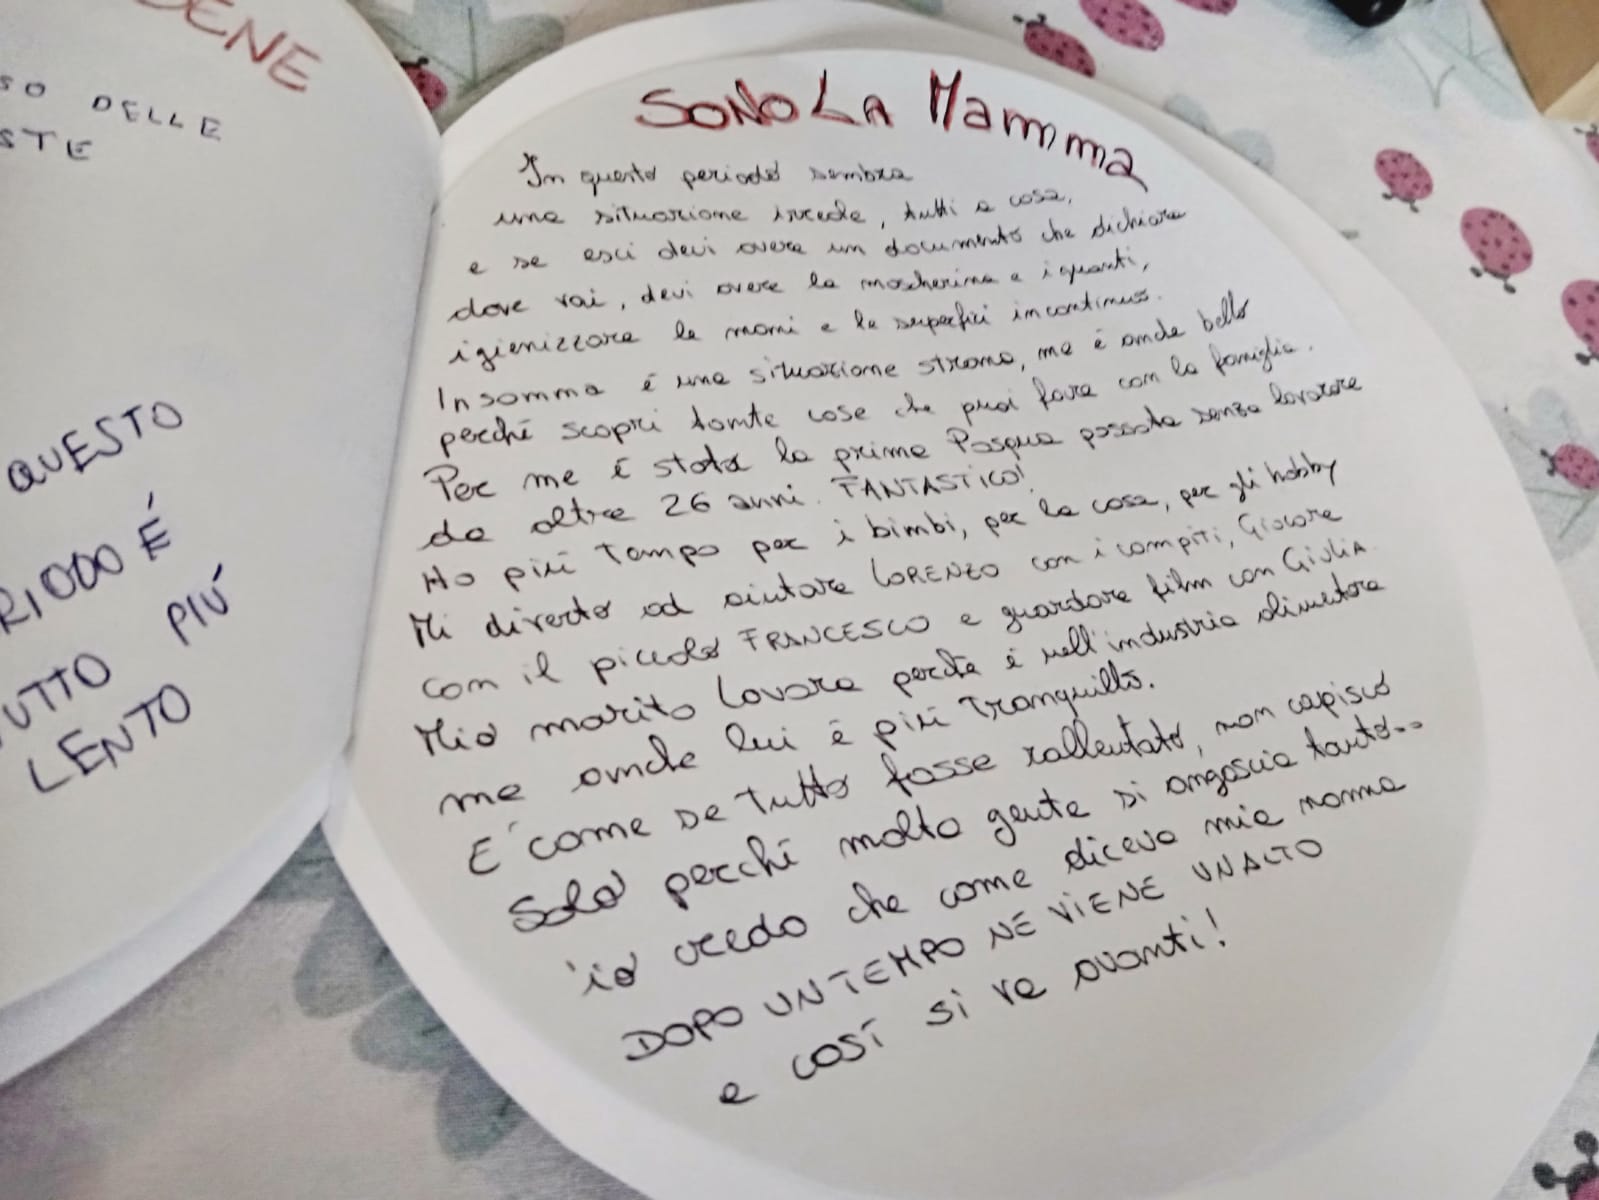 BENE
SO DELLE
STE
QUESTO
RIODO É
UTTO PIÚ
LENTO
SONO LA Mamma
In questo periodo sembra
una situazione irreale, tutti a casa,
e se esci devi avere un documento che dichiara
dove vai, devi avere la mascherina e i guanti,
igienizzare le mani e le superfici in continuo.
Insomma é una situazione strana, ma é anche bello
perché scopri tante cose che puoi fare con la famiglia.
Per me é stata la prima Pasqua passata senza lavorare
da oltre 26 anni. FANTASTICO!
Ho piú tempo per i bimbi, per la casa, per gli hobby
Mi diverto ad aiutare LORENZO con i compiti, Giocare
con il piccolo FRANCESCO e guardare film con GIULIA
Mio marito lavora perché é nell'industria alimetare
ma anche lui é piú tranquillo.
E' come se tutto fosse rallentato, non capisco
solo perché molta gente si angoscia tanto...
io credo che come diceva mia nonna
DOPO UN TEMPO NE VIENE UN ALTO
e cosí si va avanti!